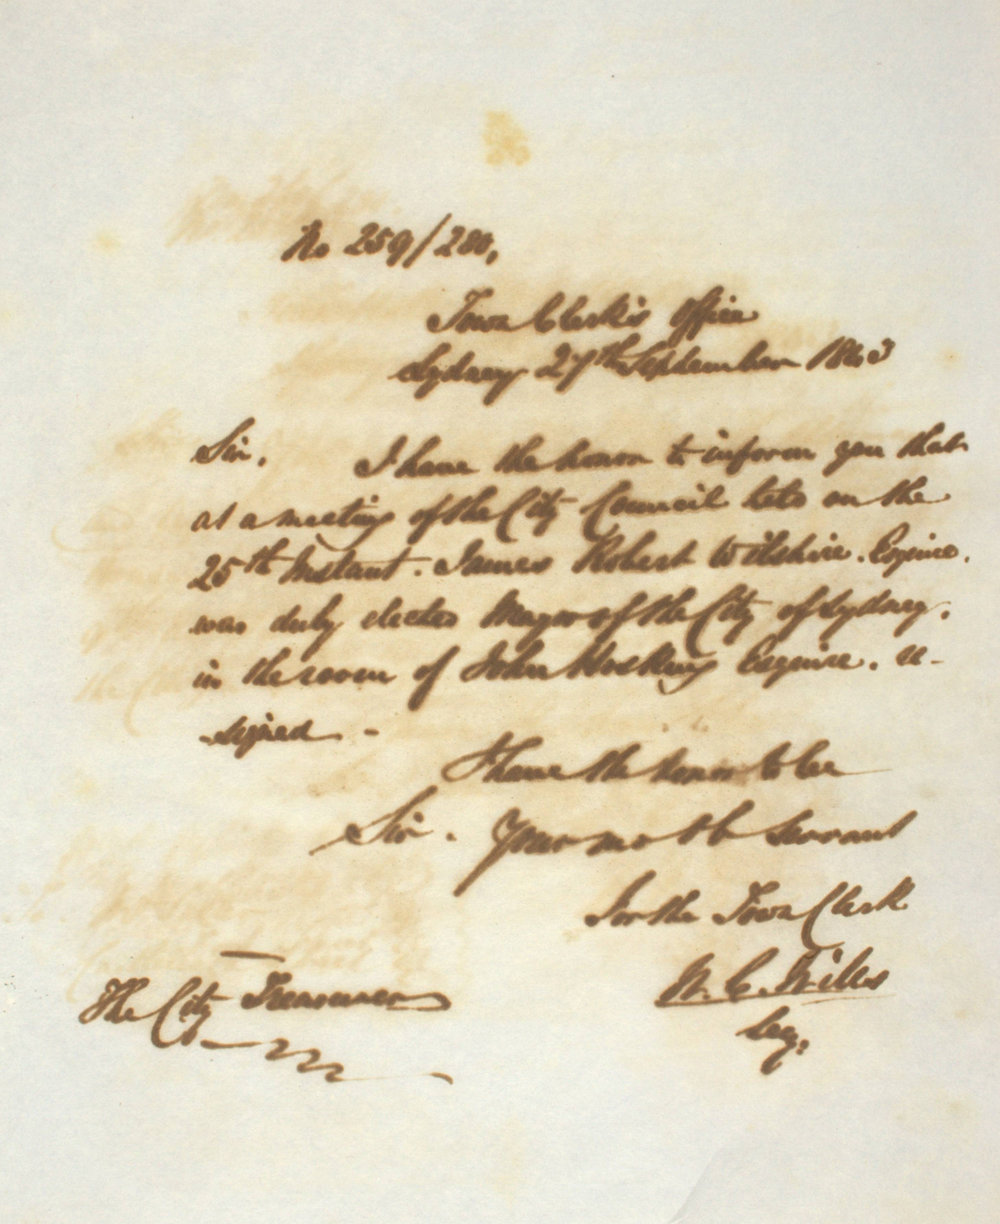 No 259/280,
Town Clerk's Office
Sydney 27th September 1843
Sir, I have the honor to inform you that
at a meeting of the City Council held on the
25th Instant. James Robert Wilshire. Esquire.
was duly elected Mayor of the City of Sydney.
in the room of John Hosking Esquire. re-
-signed -
I have the honor to be
Sir. Your mo ob Servant
For the Town Clerk
The City Treasurer
W. C. Wills